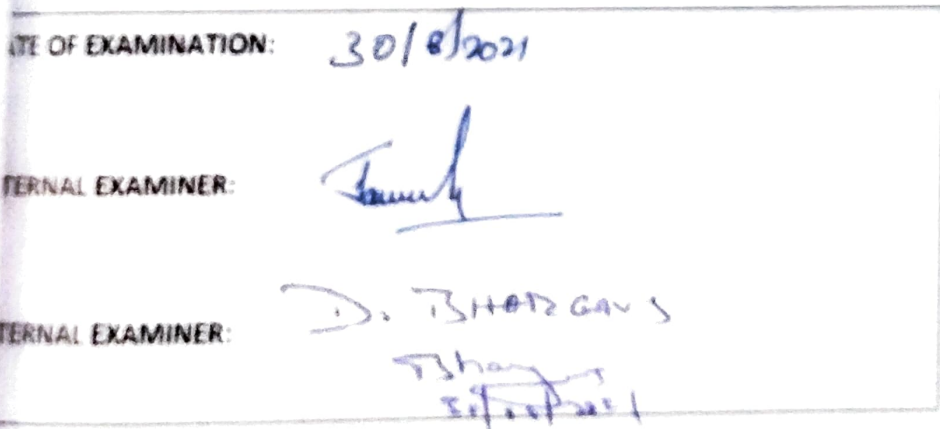 ATE OF EXAMINATION: 30/8/2021
TERNAL EXAMINER:
TERNAL EXAMINER: D. BHARGAV S